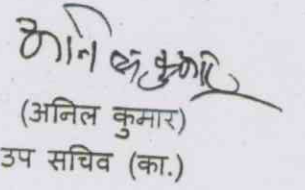 अनिल कुमार
(अनिल कुमार)
उप सचिव (का.)